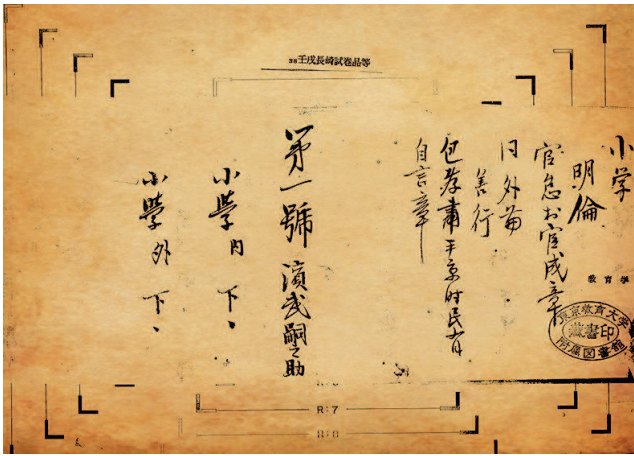 壬戌長崎試巻品等
小学
明倫
官怠お宦成章
同外篇
善行
包孝肅尹京時民有
自言章
第一號 濱武嗣之助
小學内 下、
小學外 下、
教育學
東京教育大学
蔵書印
附属図書館
R:7
R:8